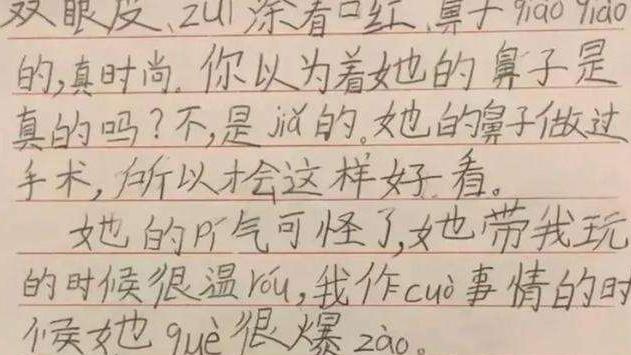 双眼皮、zuǐ涂着口红、鼻子qiào qiào
的,真时尚。你以为着她的鼻子是
真的吗?不,是jiǎ的。她的鼻子做过
手术,所以才会这样好看。
她的pí气可怪了,她带我玩
的时候很温róu,我作cuò事情的时
候她què很爆zào。